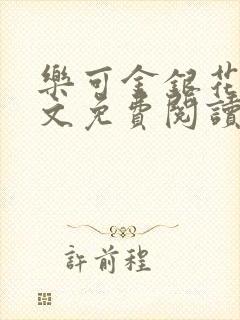 樂可金銀花
文免費閱讀
許前程